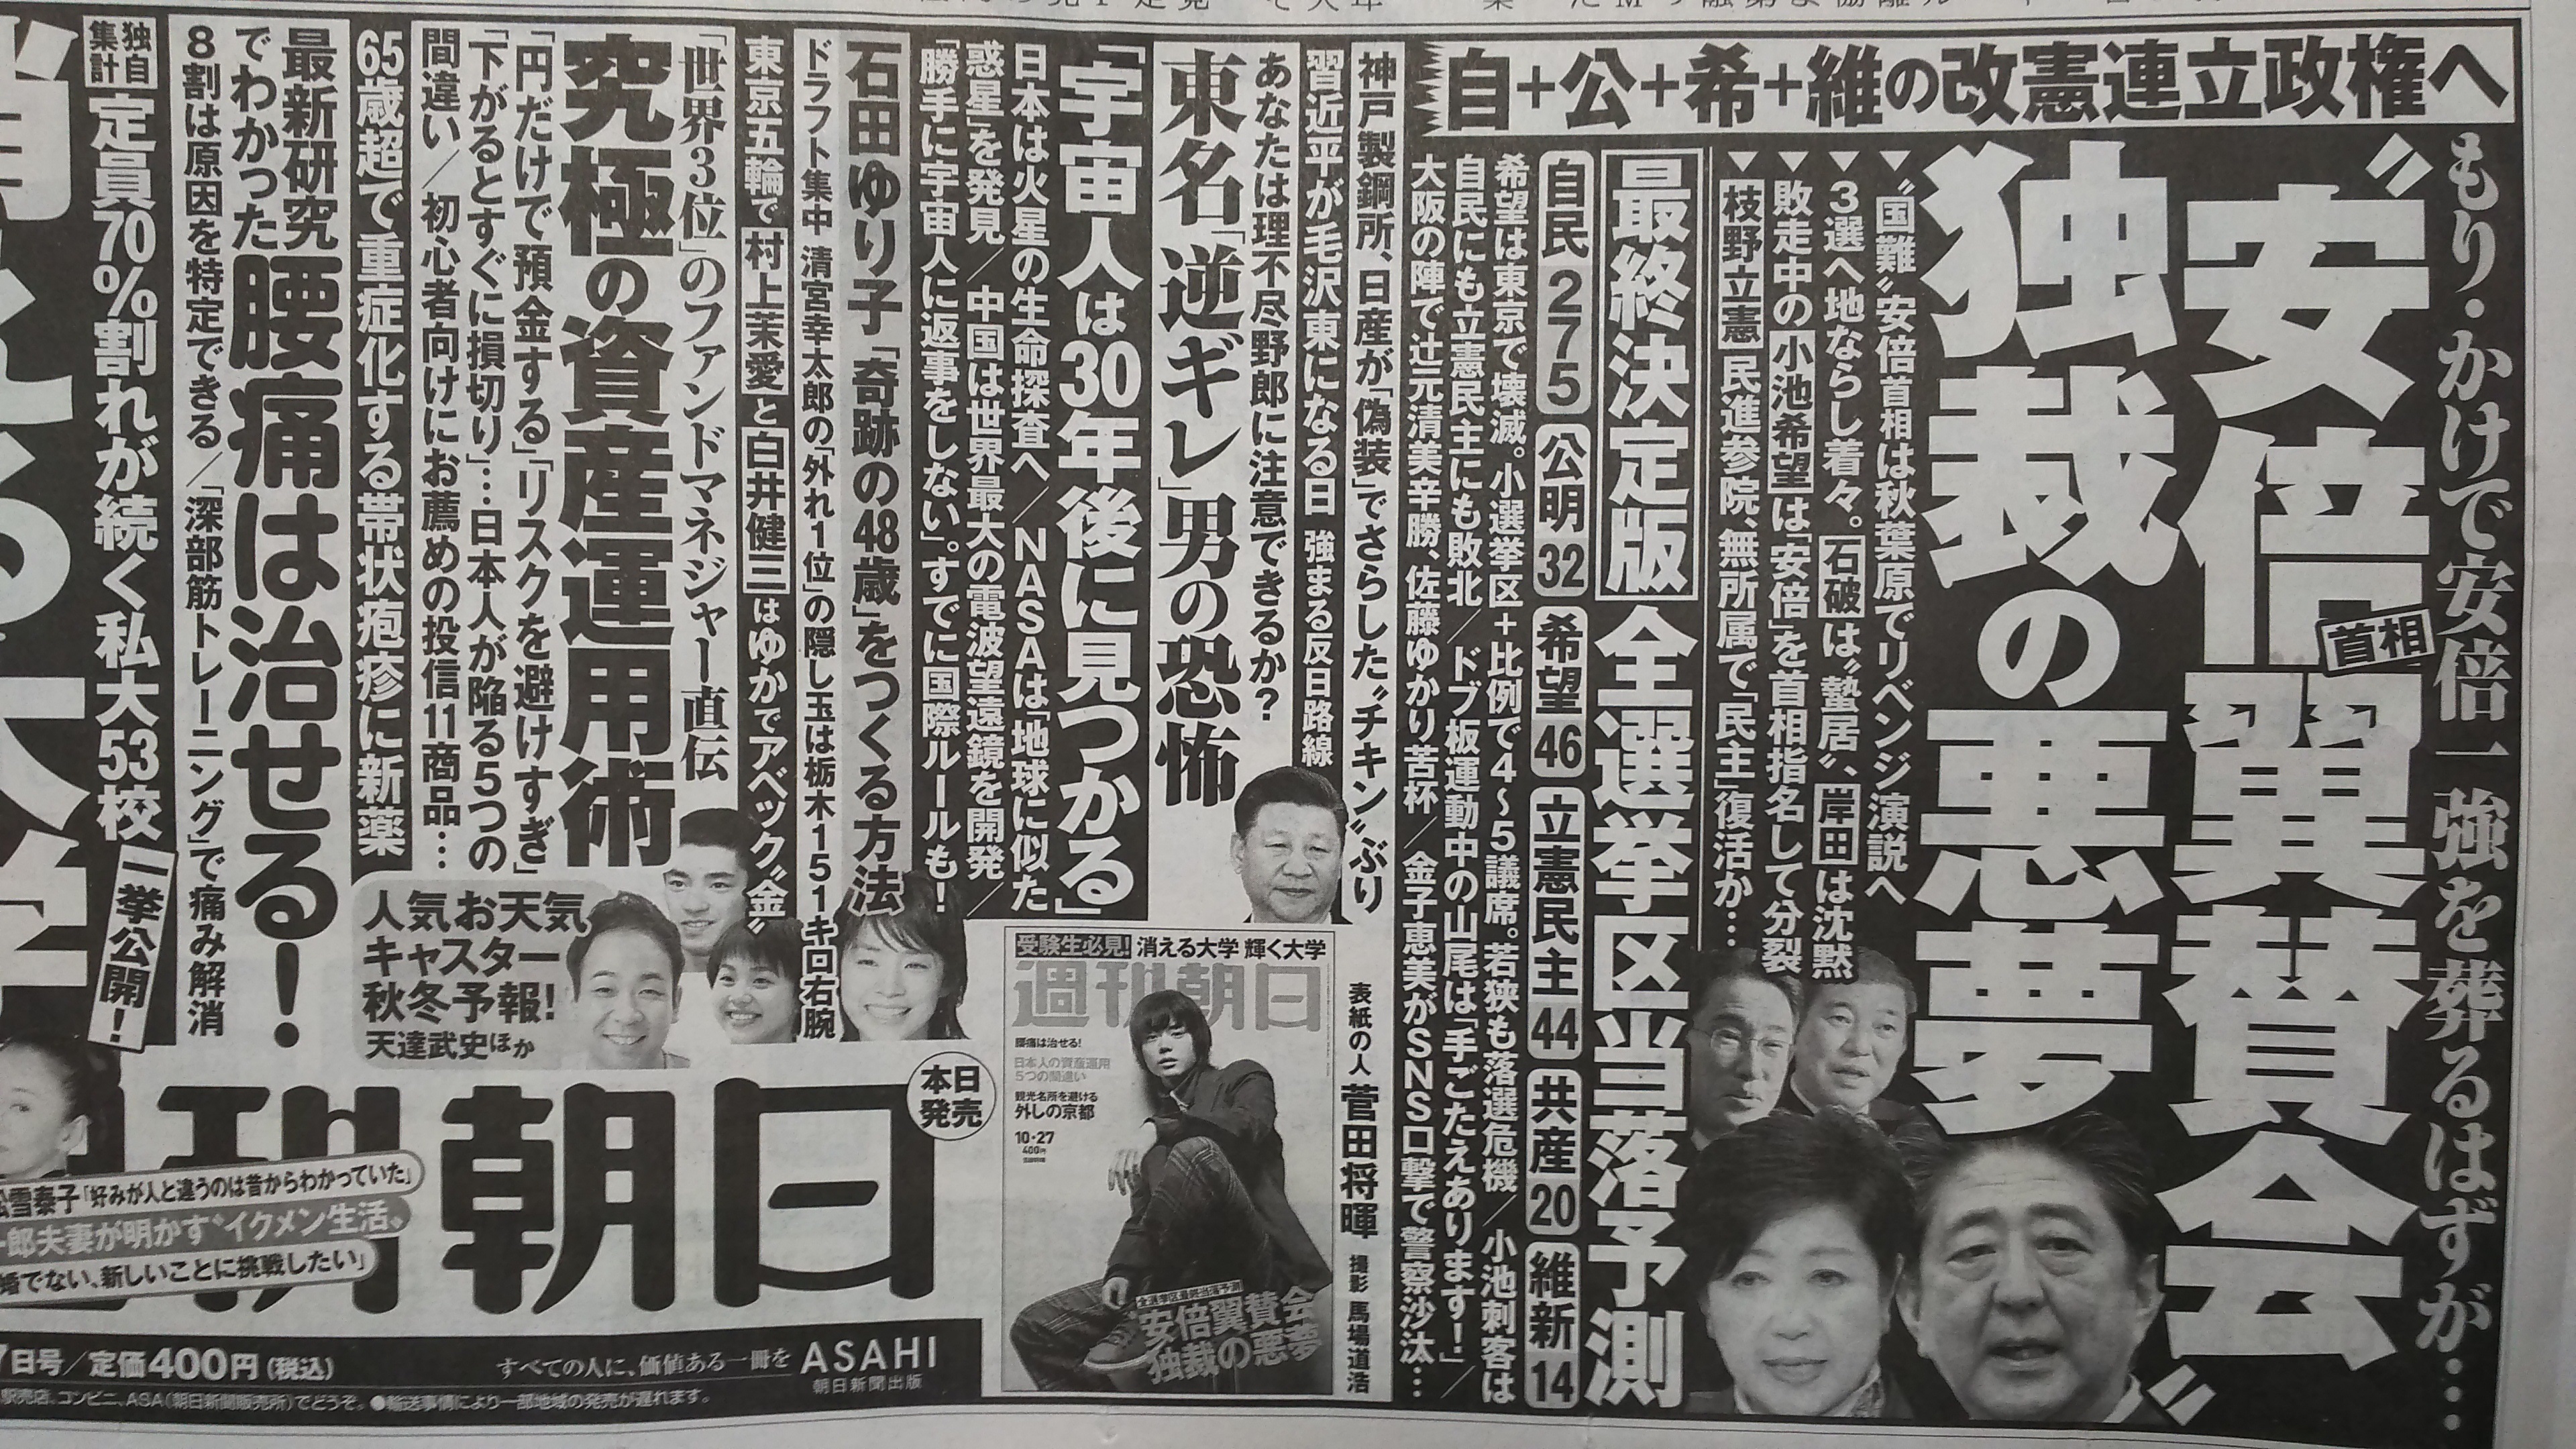 自+公+希+維の改憲連立政権へ
もり・かけで安倍一強を葬るはずが…
〝安倍首相翼賛会〟
独裁の悪夢
▼〝国難〟安倍首相は秋葉原でリベンジ演説へ
▼3選へ地ならし着々。石破は〝蟄居〟、岸田は沈黙
▼敗走中の小池希望は「安倍」を首相指名して分裂
▼枝野立憲 民進参院、無所属で「民主」復活か…
最終決定版 全選挙区当落予測
自民275 公明32 希望46 立憲民主44 共産20 維新14
希望は東京で壊滅。小選挙区+比例で4～5議席。若狭も落選危機/小池刺客は
自民にも立憲民主にも敗北/ドブ板運動中の山尾は「手ごたえあります!」/
大阪の陣で辻元清美辛勝、佐藤ゆかり苦杯/金子恵美がSNS口撃で警察沙汰…
神戸製鋼所、日産が「偽装」でさらした〝チキン〟ぶり
習近平が毛沢東になる日 強まる反日路線
あなたは理不尽野郎に注意できるか?
東名「逆ギレ」男の恐怖
「宇宙人は30年後に見つかる」
日本は火星の生命探査へ/NASAは「地球に似た
惑星」を発見/中国は世界最大の電波望遠鏡を開発/
「勝手に宇宙人に返事をしない」。すでに国際ルールも!
石田ゆり子「奇跡の48歳」をつくる方法
ドラフト集中 清宮幸太郎の「外れ1位」の隠し玉は栃木151キロ右腕
東京五輪で村上茉愛と白井健三はゆかでアベック〝金〟
「世界3位」のファンドマネジャー直伝
究極の資産運用術
「円だけで預金する」「リスクを避けすぎ」
「下がるとすぐに損切り」…日本人が陥る5つの
間違い/初心者向けにお薦めの投信11商品…
65歳超で重症化する帯状疱疹に新薬
最新研究でわかった腰痛は治せる!
8割は原因を特定できる/「深部筋トレーニング」で痛み解消
独自集計 定員70%割れが続く私大53校 一挙公開!
大学
人気お天気
キャスター
秋冬予報!
天達武史ほか
受験生必見! 消える大学 輝く大学
週刊朝日
腰痛は治せる!
日本人の資産運用
5つの間違い
観光名所を避ける
外しの京都
10・27
400円
全選挙区最終当落予測
安倍翼賛会
独裁の悪夢
表紙の人 菅田将暉 撮影 馬場道浩
本日発売
刊朝日
雪泰子「好みが人と違うのは昔からわかっていた」
郎夫妻が明かす〝イクメン生活〟
婚でない、新しいことに挑戦したい」
7日号/定価400円(税込)
すべての人に、価値ある一冊を ASAHI
朝日新聞出版
駅売店、コンビニ、ASA(朝日新聞販売所)でどうぞ。●輸送事情により一部地域の発売が遅れます。